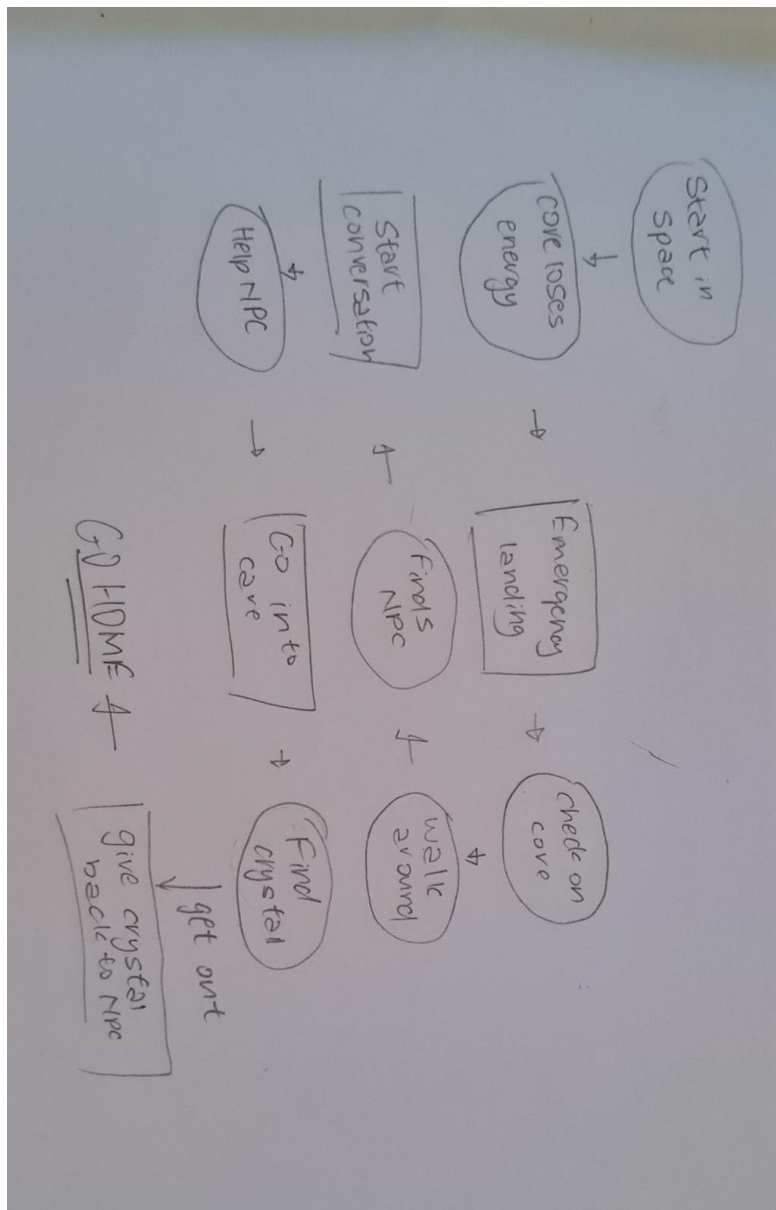 Start in
space
core loses
energy
Emergency
landing
check on
core
walk
around
finds
NPC
Start
conversation
Help NPC
Go into
cave
Find
crystal
get out
give crystal
back to NPC
GO HOME